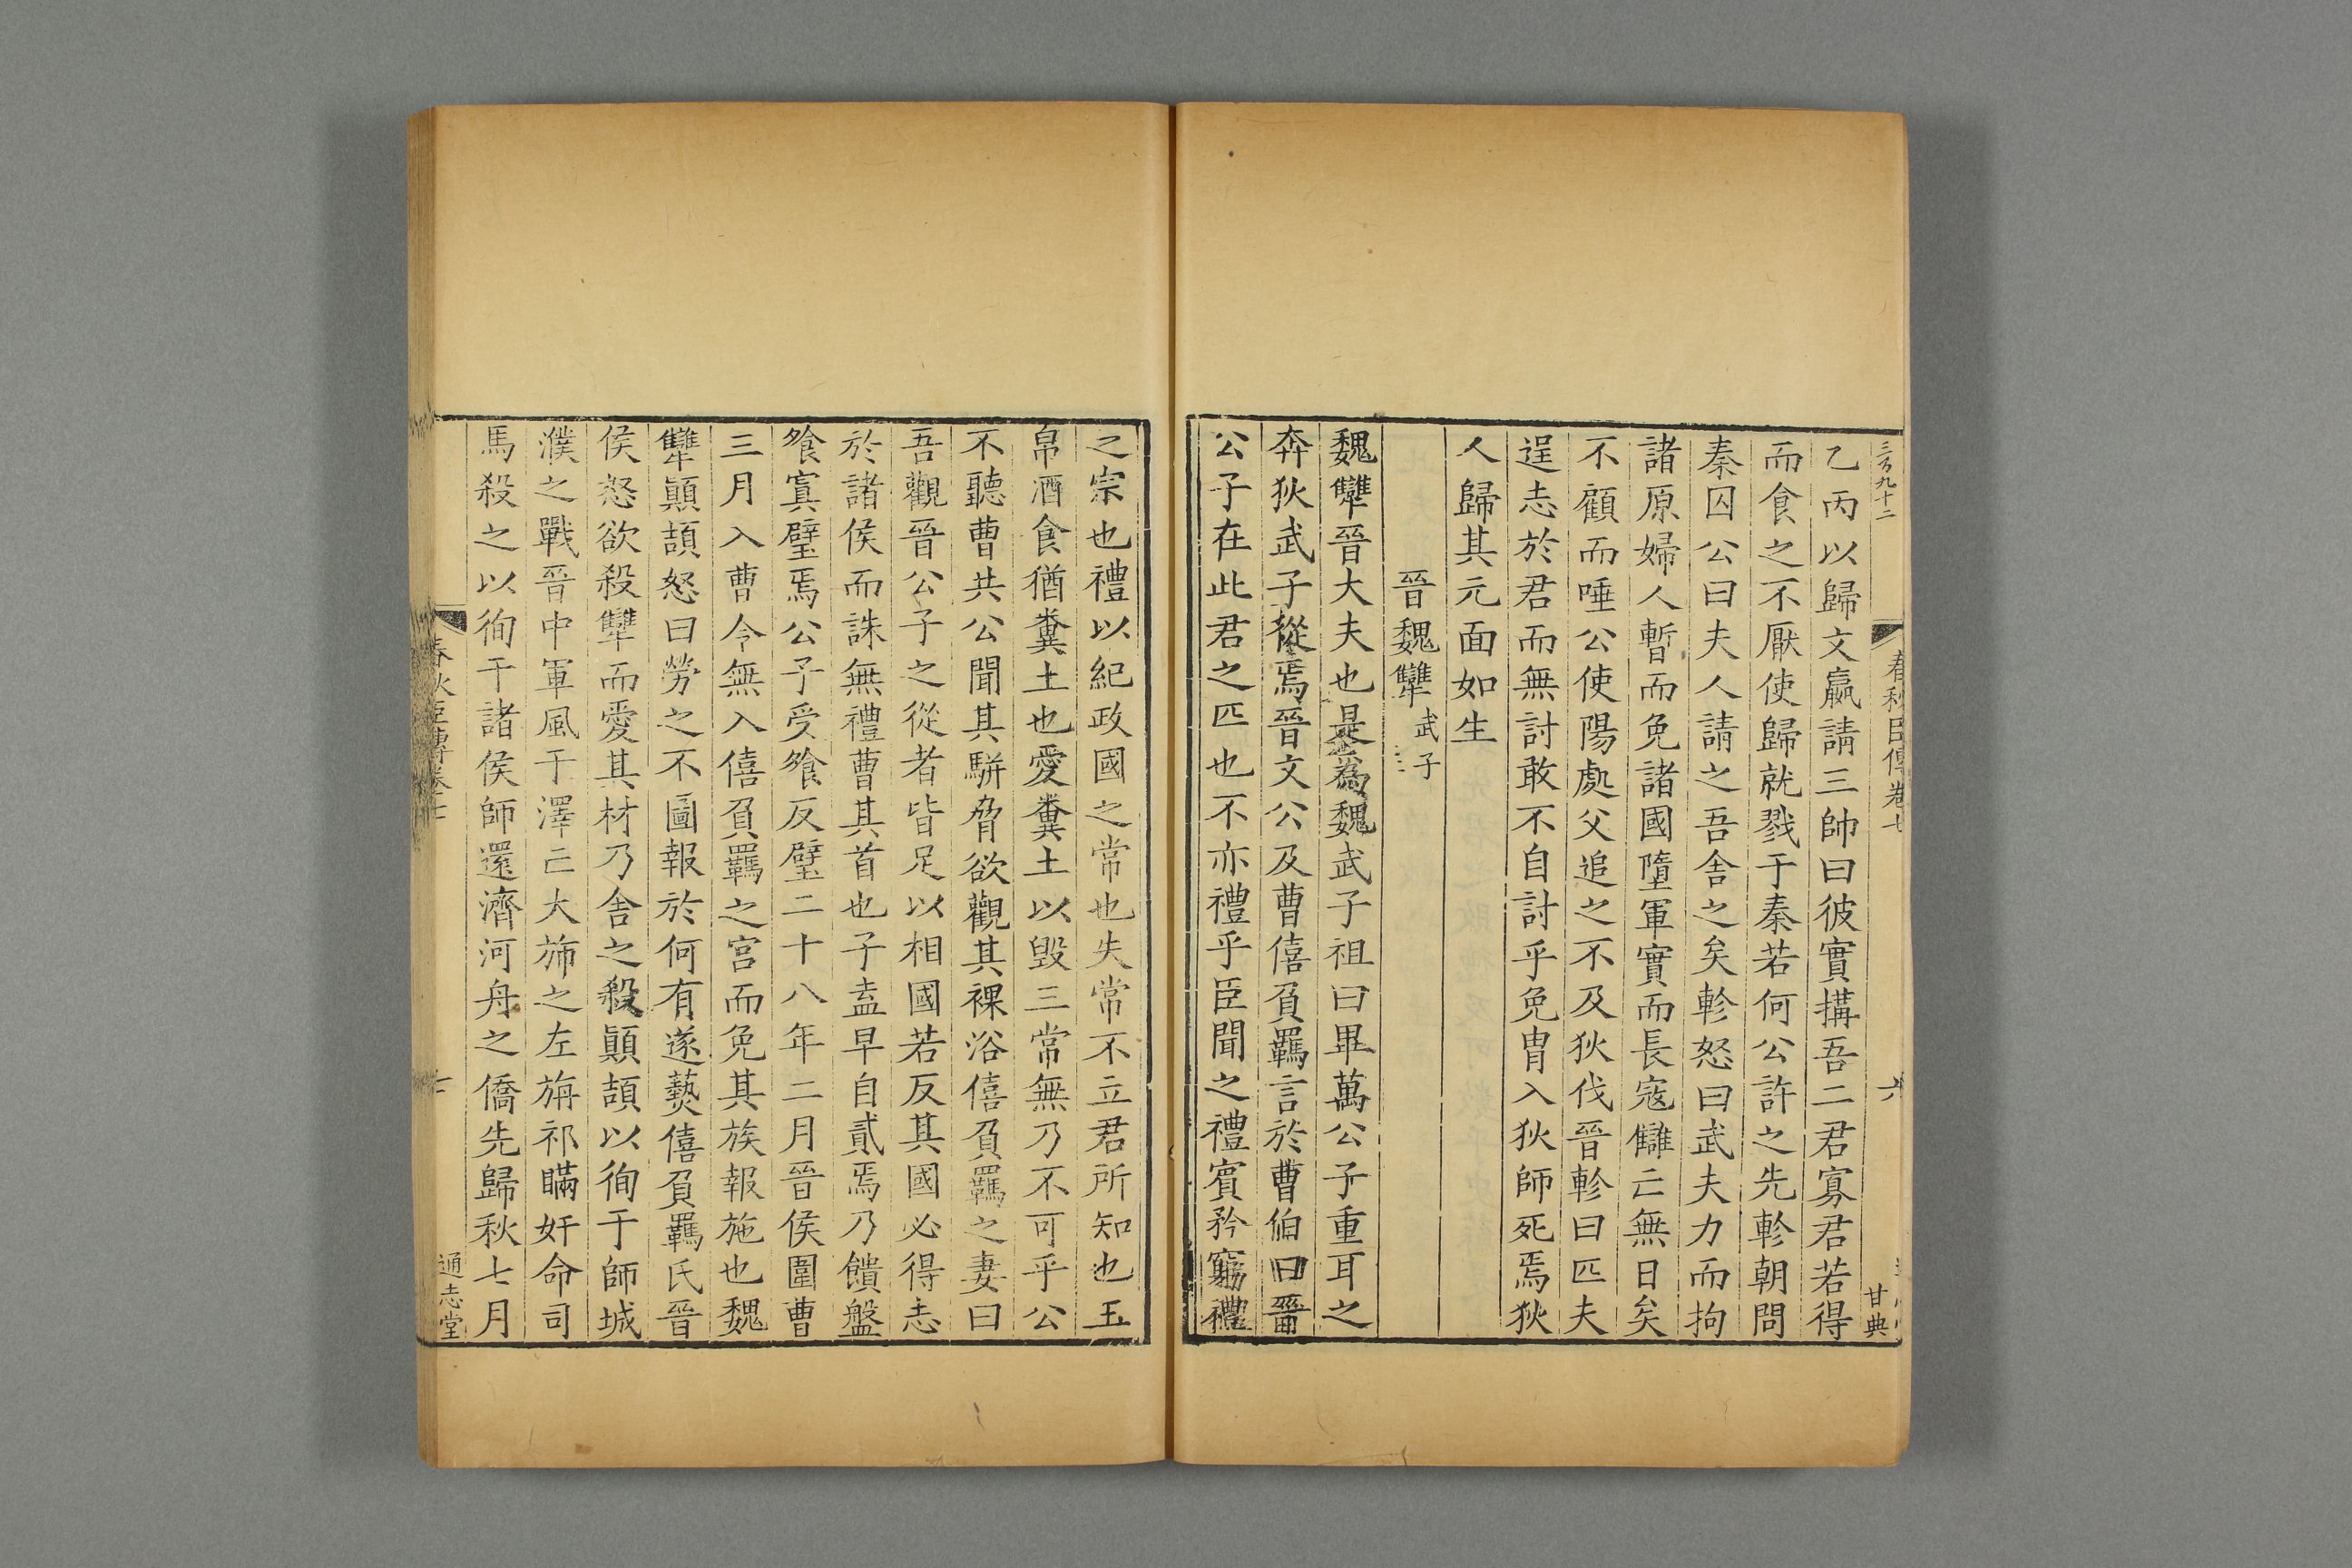 三百九十二
春秋臣傳卷七
六
甘典
乙丙以歸文嬴請三帥曰彼實搆吾二君寡君若得
而食之不厭使歸就戮于秦若何公許之先軫朝問
秦囚公曰夫人請之吾舍之矣軫怒曰武夫力而拘
諸原婦人暫而免諸國墮軍實而長寇讎亡無日矣
不顧而唾公使陽處父追之不及狄伐晉軫曰匹夫
逞志於君而無討敢不自討乎免冑入狄師死焉狄
人歸其元面如生
晉魏犫武子
魏犫晉大夫也是為魏武子祖曰畢萬公子重耳之
奔狄武子從焉晉文公及曹僖負羈言於曹伯曰晉
公子在此君之匹也不亦禮乎臣聞之禮賓矜窮禮
之宗也禮以紀政國之常也失常不立君所知也玉
帛酒食猶糞土也愛糞土以毀三常無乃不可乎公
不聽曹共公聞其駢脅欲觀其裸浴僖負羈之妻曰
吾觀晉公子之從者皆足以相國若反其國必得志
於諸侯而誅無禮曹其首也子盍早自貳焉乃饋盤
飧寘璧焉公子受飧反璧二十八年二月晉侯圍曹
三月入曹令無入僖負羈之宮而免其族報施也魏
犫顛頡怒曰勞之不圖報於何有遂爇僖負羈氏晉
侯怒欲殺犫而愛其材乃舍之殺顛頡以徇于師城
濮之戰晉中軍風于澤亡大斾之左旃祁瞞奸命司
馬殺之以徇于諸侯師還濟河舟之僑先歸秋七月
春秋臣傳卷七
七
通志堂